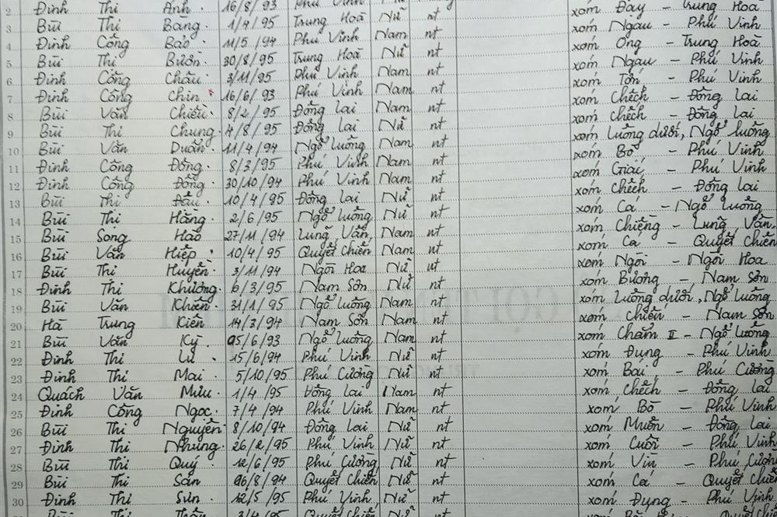 2 Đinh Thị Anh. 16/8/93 Phú Vinh Nữ nt xóm Đáy - Trung Hoà
3 Bùi Thị Băng. 1/4/95 Trung Hoà Nữ nt xóm Ngau - Phú Vinh
4 Đinh Công Bảo. 11/5/94 Phú Vinh Nam nt xóm Ong - Trung Hoà
5 Bùi Thị Bườn. 30/8/95 Trung Hoà Nữ nt xóm Ngau - Phú Vinh
6 Đinh Công Châu. 3/11/95 Phú Vinh Nam nt xóm Tớn - Phú Vinh
7 Đinh Công Chín 16/6/93 Phú Vinh Nam nt xóm Chếch - Đông Lai
8 Bùi Văn Chiều. 8/2/95 Đông Lai Nam nt xóm chếch - Đông Lai
9 Bùi Thị Chung. 4/8/95 Đông Lai Nữ nt xóm Luông dưới, Ngổ luông
10 Bùi Văn Duẩn. 11/4/94 Ngổ Luông Nam nt xóm Bò - Phú Vinh
11 Đinh Công Đông. 8/3/95 Phú Vinh Nam nt xóm - Phú Vinh
12 Đinh Công Đồng 30/10/94 Phú Vinh Nam nt xóm chếch - Đông Lai
13 Bùi Thị Dấu. 10/4/95 Đông Lai Nữ nt xóm Cá - Ngổ Luông
14 Bùi Thị Hằng. 2/6/95 Ngổ Luông Nữ nt xóm Chiềng - Lũng Vân,
15 Bùi Song Hào 27/11/94 Lũng Vân, Nam nt xóm Cá - Quyết Chiến
16 Bùi Văn Hiệp. 10/4/95 Quyết Chiến Nam nt xóm Ngòi - Ngòi Hoa
17 Bùi Thị Huyền. 3/11/94 Ngòi Hoa Nữ nt xóm Bương - Nam Sơn
18 Đinh Thị Khương. 6/3/95 Nam Sơn Nữ nt xóm Luông dưới, Ngổ Luông
19 Bùi Văn Khiên. 31/1/95 Ngổ Luông Nam nt xóm chiến - Nam Sơn
20 Hà Trung Kiên 14/3/94 Nam Sơn Nam nt xóm Chẩm II - Ngổ Luông
21 Bùi Văn Kỳ. 05/6/93 Ngổ Luông Nam nt xóm Đụng - Phú Vinh
22 Đinh Thị Lư. 15/6/94 Phú Vinh Nữ nt xóm Báu - Phú Cường
23 Đinh Thị Mai. 5/10/95 Phú Cường Nữ nt xóm chếch - Đông Lai
24 Quách Văn Mưu. 1/4/95 Đông Lai Nam nt xóm Bò - Phú Vinh
25 Đinh Công Ngọc. 7/4/94 Phú Vinh Nam nt xóm Muôn - Đông Lai
26 Bùi Thị Nguyên. 8/10/94 Đông Lai Nữ nt xóm Cuôi - Phú Vinh
27 Đinh Thị Nhung. 26/2/95 Phú Vinh Nữ nt xóm Vin - Phú Cường
28 Bùi Thị Quý. 12/6/95 Phú Cường Nữ nt xóm Cá - Quyết Chiến
29 Bùi Thị San. 06/8/94 Quyết Chiến Nữ nt xóm Đụng - Phú Vinh
30 Đinh Thị Sún. 12/5/95 Phú Vinh Nữ nt